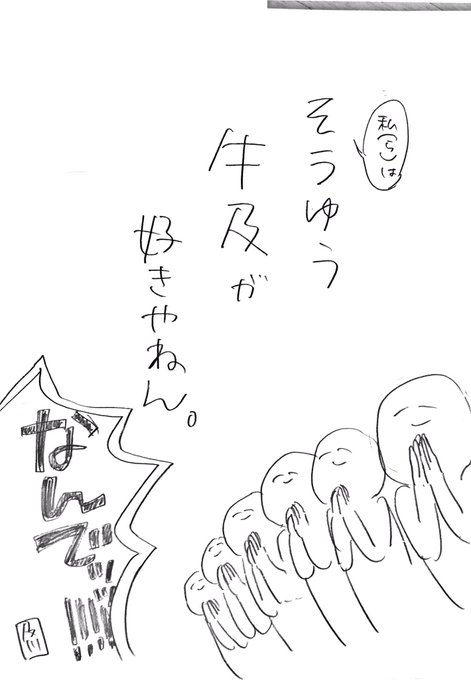 私(ら)は
そうゆう
牛及が
好きやねん。
なんでッ!!!
及川